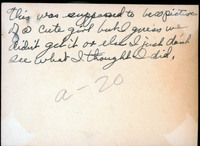 This was supposed to be a picture
of a cute girl but I guess we
didn't get it or else I just don't
see what I thought I did.
a-20